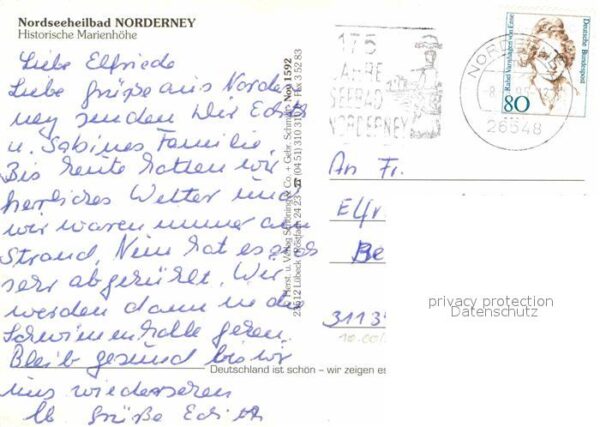 Nordseeheilbad NORDERNEY
Historische Marienhöhe
Liebe Elfriede
Liebe Grüße aus Norder
ney senden Wir Edith
u. Sabines Familie.
Bis heute hatten wir
herrliches Wetter und
wir waren immer am
Strand, Nun hat es sich
sehr abgekühlt. Wir
werden dann in die
Schwimmhalle gehen.
Bleib gesund bis wir
uns wiedersehen
lb Grüße Edith
Herst. u. Verlag Schöning & Co. + Gebr. Schmidt Noy 1592
23512 Lübeck Postfach 24 23 (04 51) 310 31 Fax 3 52 83
Deutschland ist schön – wir zeigen es
175
JAHRE
SEEBAD
NORDERNEY
NORDERNEY
26548
Deutsche Bundespost
Rahel Varnhagen von Ense
80
An Fr.
Elfr
Be
3113
privacy protection
Datenschutz